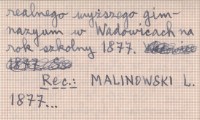 realnego wyższego gim-
nazyum w Wadowicach na
rok szkolny 1877.
Rec.: MALINOWSKI L.
1877...